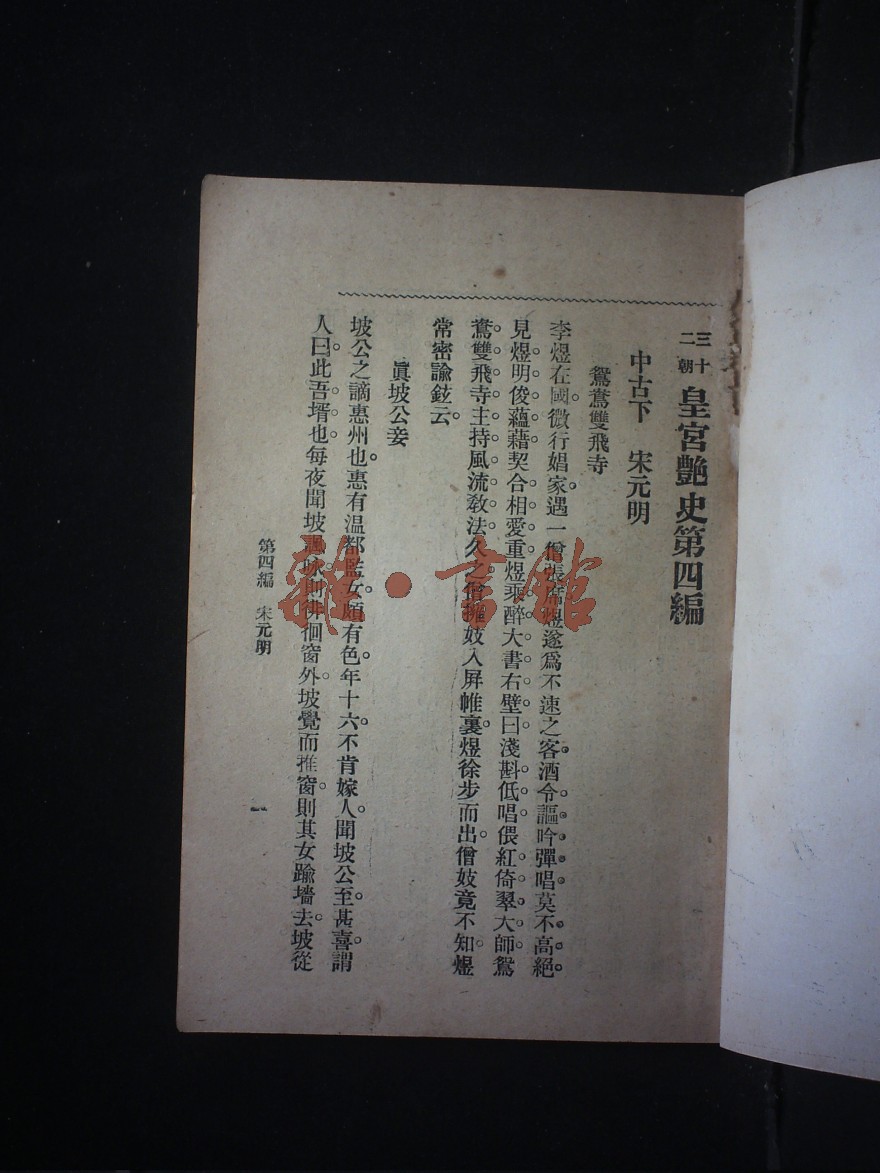 三十二朝 皇宮艷史第四編
中古下 宋元明
鴛鴦雙飛寺
李煜在國。微行娼家。遇一僧張席。煜遂爲不速之客。酒令謳吟彈唱。莫不高絕。
見煜明俊蘊藉。契合相愛重。煜乘醉大書右壁曰。淺斟低唱。偎紅倚翠。大師鴛
鴦雙飛寺主。持風流敎法。久之。僧擁妓入屏帷裏。煜徐步而出。僧妓竟不知。煜
常密諭鉉云。
眞坡公妾
坡公之謫惠州也。惠有温都監女。頗有色。年十六。不肯嫁人。聞坡公至。甚喜。謂
人曰。此吾壻也。每夜聞坡諷咏。則徘徊窗外。坡覺而推窗。則其女踰墻去。坡從
第四編 宋元明
一
雜·書館